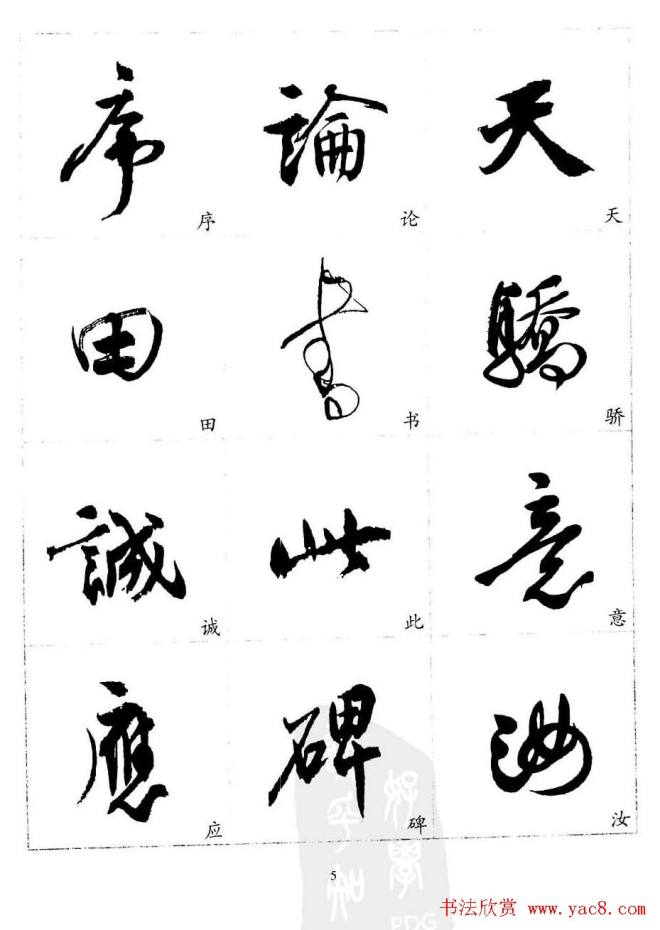 序 論 天
序 论 天
田 書 驕
田 书 骄
誠 此 意
诚 此 意
應 碑 汝
应 碑 汝
5
好學
PDG
书法欣赏 www.yac8.com